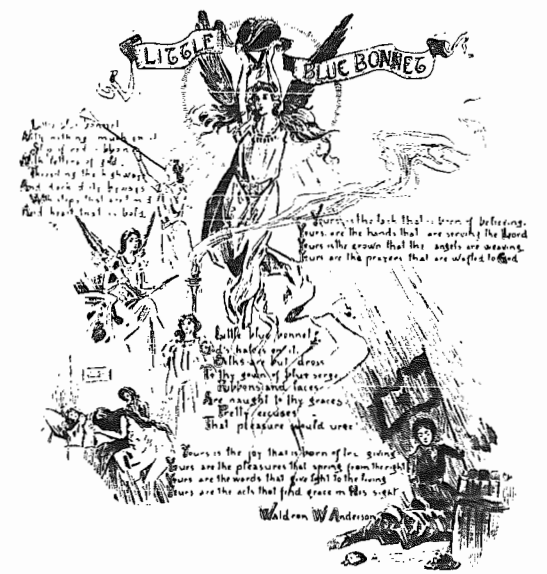 LITTLE
BLUE BONNET
Little blue bonnet
With nothing much on it
Strip of red ribbon
With letters of gold.
Threading the highways
And dark of its byways
With steps that are
And heart that is bold
Yours is the task that is born of believing.
Yours are the hands that are serving the Lord
Yours is the crown that the angels are weaving
Yours are the prayers that are wafted to God
Little blue bonnet
God's halo's on it.
Silks are but dross
To thy gown of blue serge
Ribbons and laces
Are naught to thy graces
Pretty excuses
That pleasure would urge
Yours is the joy that is born of giving
Yours are the pleasures that spring from the right
Yours are the words that give light to the living
Yours are the acts that find grace in His sight
Waldron W Anderson